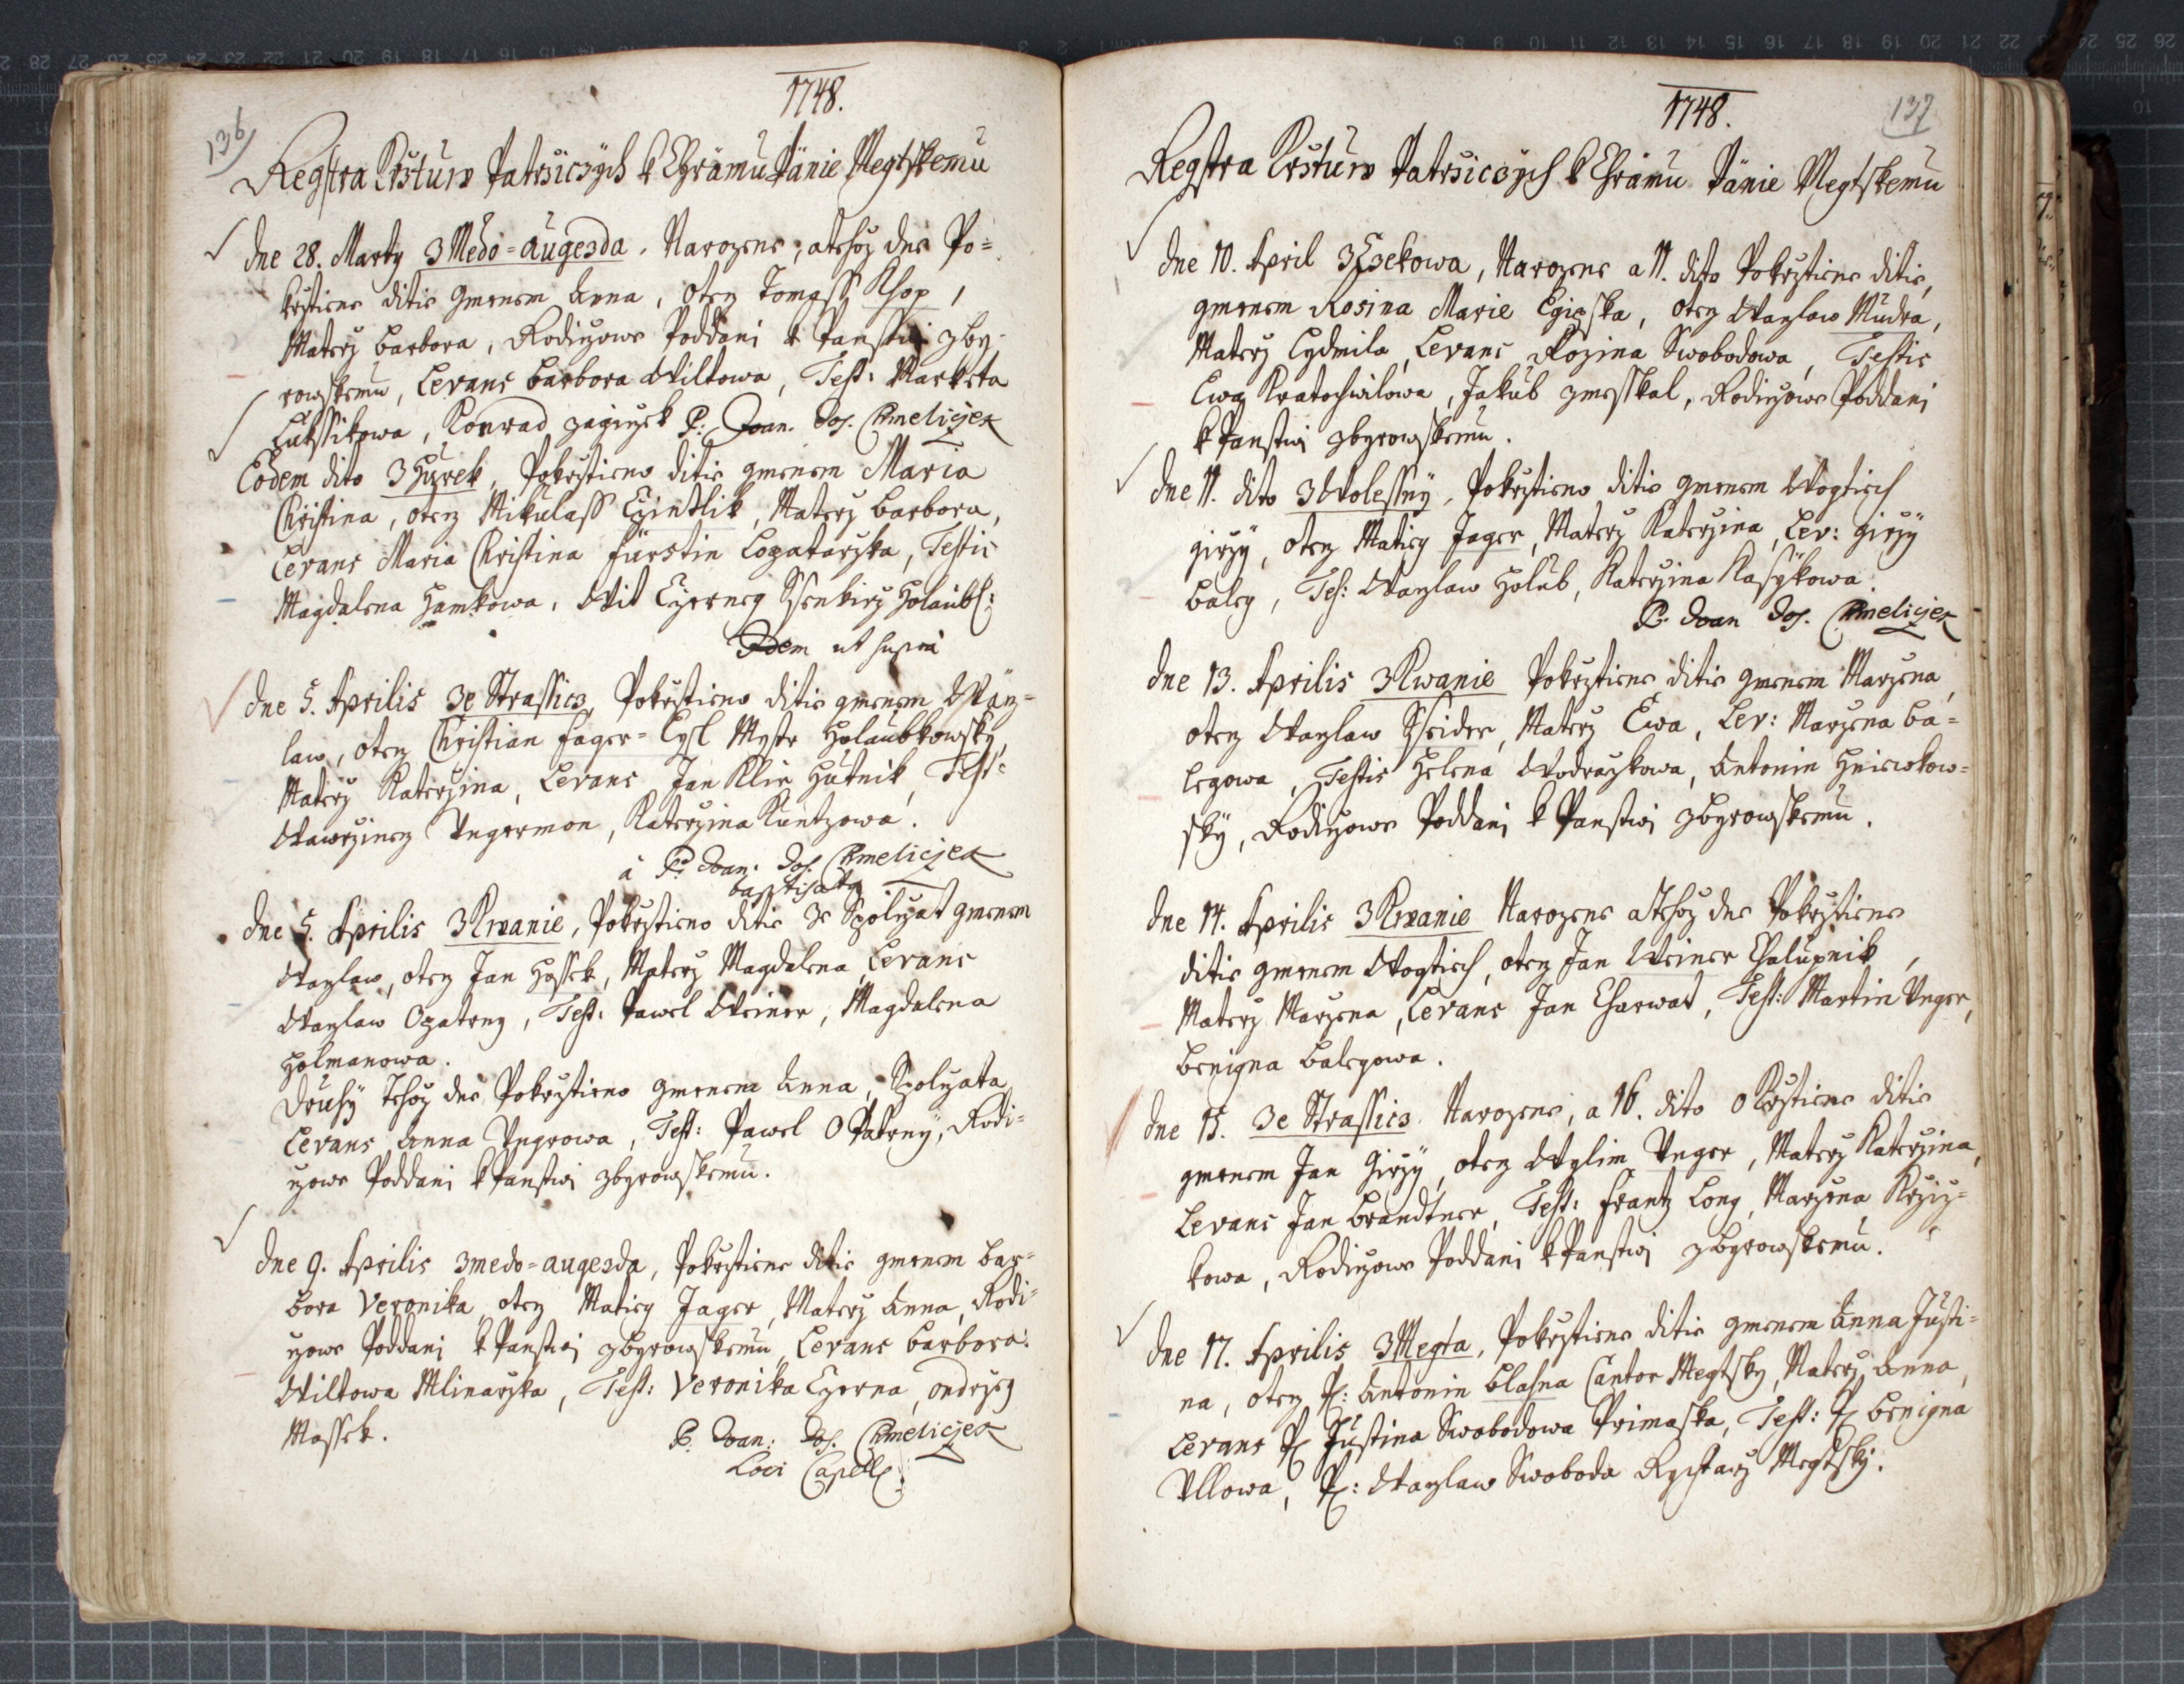 1748.
136
Regstra Krstuw Patrziczych k Chramu Panie Megtskemu
dne 28. Marty z Medo=augezda, Narozene, a tehoz dne Po=
krztiene ditie gmenem Anna, otecz Tomass Knop,
Materz Barbora, Rodiczowe Poddani k Panstwi Zby-
rowskemu, Levans Barbora Wiltowa, Test: Marketa
Lukssikowa, Konrad P: Joan. Jos. Chmeliczek
Eodem dito z Hurek, Pokrztieno ditie gmenem Maria
Christina, otecz Mikulass Czintlik, Materz Barbora,
Levans Maria Christina Fürstin Lozatarzka, Testis
Magdalena Hamkowa, Wit Czerneg Ssenkirz Holaubk:
Idem ut supra
dne 5. Aprilis ze Strassicz, Pokrztieno ditie gmenem Wacz=
law, otecz Christian Fager= Cysl Mystr Holaubkowsky,
Materz Katerzina, Levans Jan Klir Hutnik, Test:
Wawrzinecz Ungermon, Katerzina Kuntzowa.
a P: Joan: Jos. Chmeliczek
baptisata
dne 5. Aprilis z Kwanie, Pokrztieno ditie ze Spolczat gmenem
Waczlaw, otecz Jan Hossek, Materz Magdalena, Levans
Waczlaw Opatrny, Test: Pawel Weiner, Magdalena
Holmanowa.
Druhy tehoz dne Pokrztieno gmenem Anna, Spolczata
Levans Anna Ungrowa, Test: Pawel Opatrny, Rodi=
czowe Poddani k Panstwi Zbyrowskemu.
dne 9. Aprilis z medo=augezda, Pokrztiene ditie gmenem Bar=
bora Veronika, otecz Matieg Jager, Materz Anna, Rodi=
czowe Poddani k Panstwi Zbyrowskemu, Levans Barbora
Wiltowa Mlinarzka, Test: Veronika Czerna, Ondrzeg
Massek.
P. Joan: Jos. Chmeliczek
Loci Capell:
1748.
137
Regstra Krstuw Patrziczych k Chramu Panie Megtskemu
dne 10. April z Czekowa, Narozene a 11. dito Pokrztiene ditie,
gmenem Rosina Marie Egipska, otecz Waczlaw Mudra,
Materz Lydmila, Levans Rozina Swobodowa, Testis
Ewa Kratochwilowa, Jakub Zmesskal, Rodiczowe Poddani
k Panstwi Zbyrowskemu.
dne 11. dito z Wolessny, Pokrztieno ditie gmenem Wogtiech
Girzy, otecz Matieg Jager, Materz Katerzina, Lev: Girzy
Baley, Tes: Waczlaw Holub, Katerzina Kasykowa.
P. Joan Jos. Chmeliczek
dne 13. Aprilis z Kwanie Pokrztiene ditie gmenem Marzena,
otecz Waczlaw Ssnider, Materz Ewa, Lev: Marzena Ba=
legowa, Testis Helena Wodrazkowa, Antonin Hniewkow=
sky, Rodiczowe Poddani k Panstwi Zbyrowskemu.
dne 14. Aprilis z Kwanie Narozene a tehoz dne Pokrztiene
ditie gmenem Wogtiech, otecz Jan Weiner Chalupnik,
Materz Marzena, Levans Jan Charwat, Test: Martin Unger,
Benigna Balegowa.
dne 15. ze Strassicz Narozene, a 16. dito Okrztiene ditie
gmenem Jan Girzy, otecz Wylim Unger, Materz Katerzina,
Levans Jan Brandtner, Test: Frantz Long, Marzena Krziz=
kowa, Rodiczowe Poddani k Panstwi Zbyrowskemu.
dne 17. Aprilis z Megta, Pokrztiene ditie gmenem Anna Justi=
na, otecz P: Antonin Blahna Cantor Megtsky, Materz Anna,
Levans P: Justina Swobodowa Primaska, Test: P: Benigna
Ullowa, P: Waczlaw Swoboda Rychtarz Megtsky.